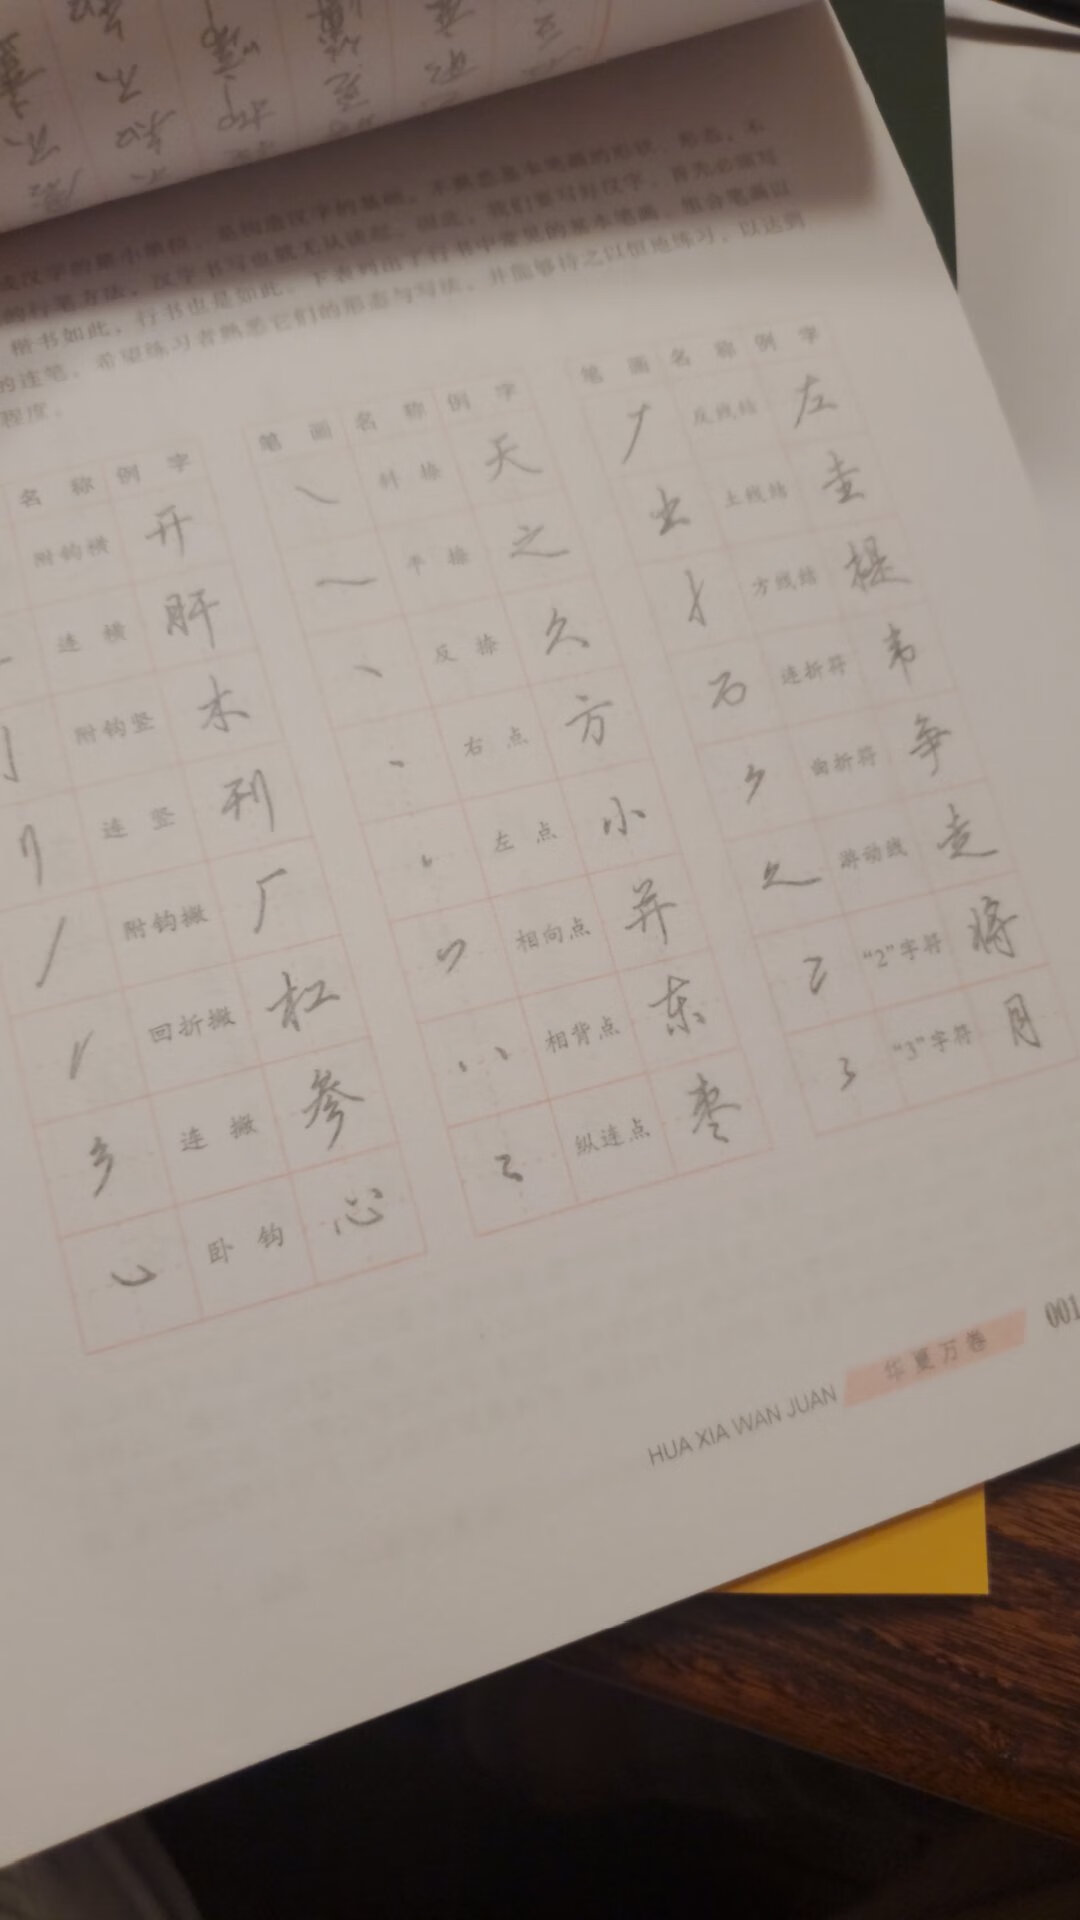 成汉字的最小单位，是构造汉字的基础。不熟悉基本笔画的形状、形态，不
的行笔方法，汉字书写也就无从谈起。因此，我们要写好汉字，首先必须写
楷书如此，行书也是如此。下表列出了行书中常见的基本笔画、组合笔画以
的连笔。希望练习者熟悉它们的形态与写法，并能够持之以恒地练习，以达到
程度。
名称 例字
附钩横 开
连横 肝
附钩竖 木
连竖 刊
附钩撇 厂
回折撇 杠
连撇 参
卧钩 心
笔画 名称 例字
斜捺 天
平捺 之
反捺 久
右点 方
左点 小
相向点 并
相背点 东
纵连点 枣
笔画 名称 例字
反线结 左
土线结 圭
方线结 提
连折符 韦
曲折符 争
游动线 走
“2”字符 将
“3”字符 月
HUA XIA WAN JUAN 华夏万卷 001